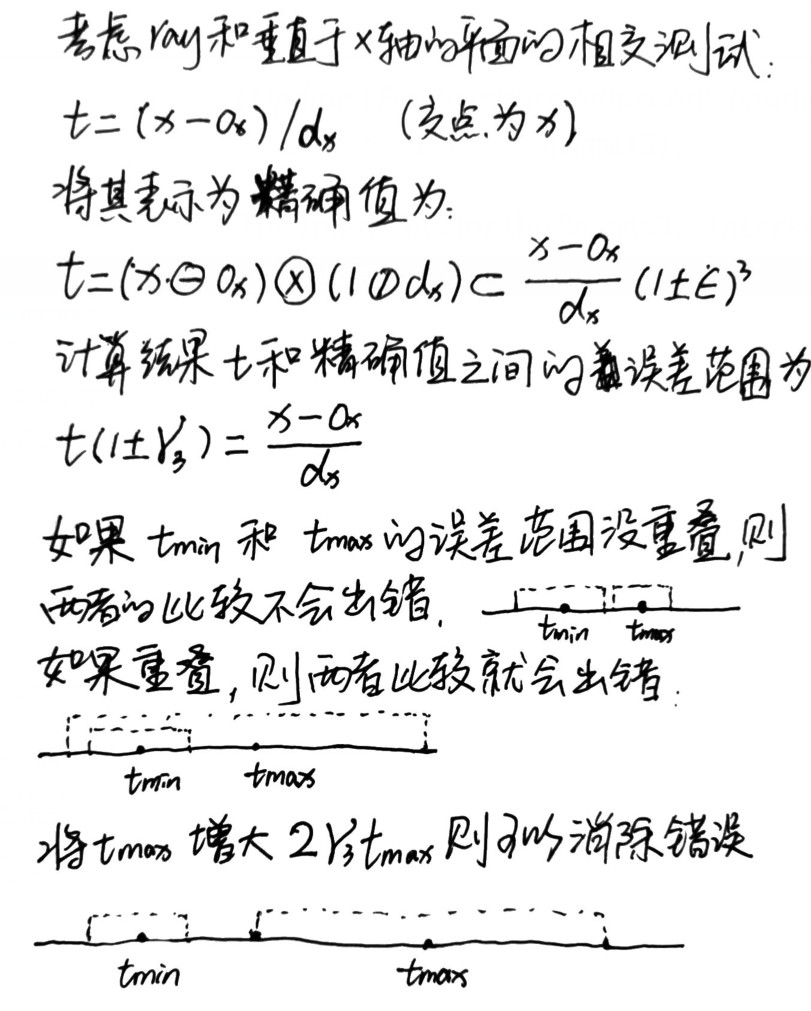 考虑ray和垂直于x轴的平面的相交测试:
t=(x-Ox)/dx (交点为x)
将其表示为精确值为:
t=(x⊖Ox)⊗(1⊘dx)⊂ x-Ox/dx (1±ε)³
计算结果t和精确值之间的误差范围为
t(1±γ₃)= x-Ox/dx
如果 tmin 和 tmax的误差范围没重叠,则
两者的比较不会出错.
tmin tmax
如果重叠,则两者比较就会出错.
tmin tmax
将tmax 增大 2γ₃tmax 则可以消除错误
tmin tmax